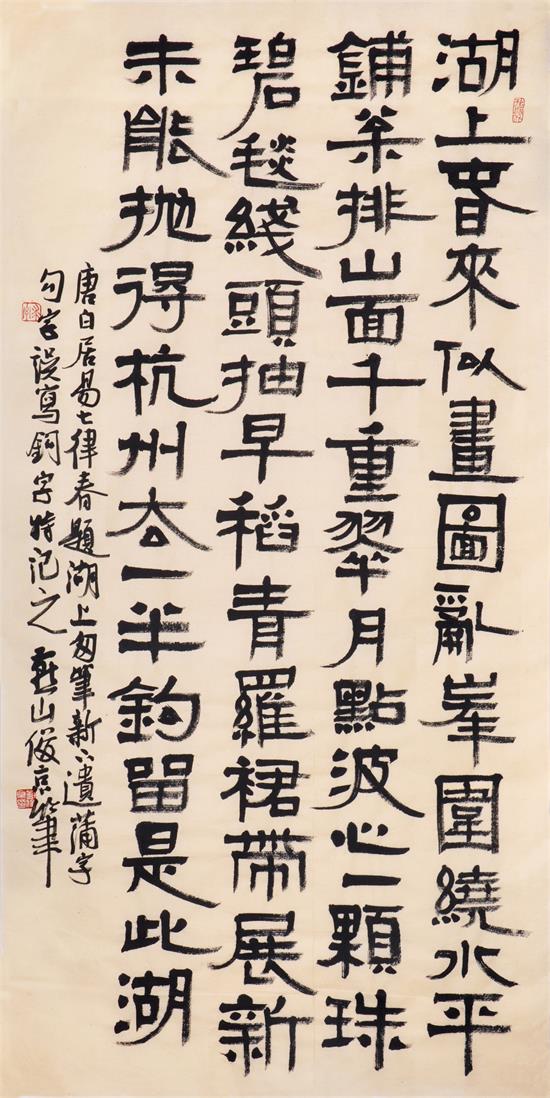 湖上春來似畫圖亂峯圍繞水平
鋪枀排山面千重翠月點波心一顆珠
碧毯綫頭抽早稻青羅裙帶展新
未能抛得杭州去一半鈎留是此湖
唐白居易七律春題湖上匆筆新下遺蒲字
勾字误寫鈎字特记之 燕山俊京筆